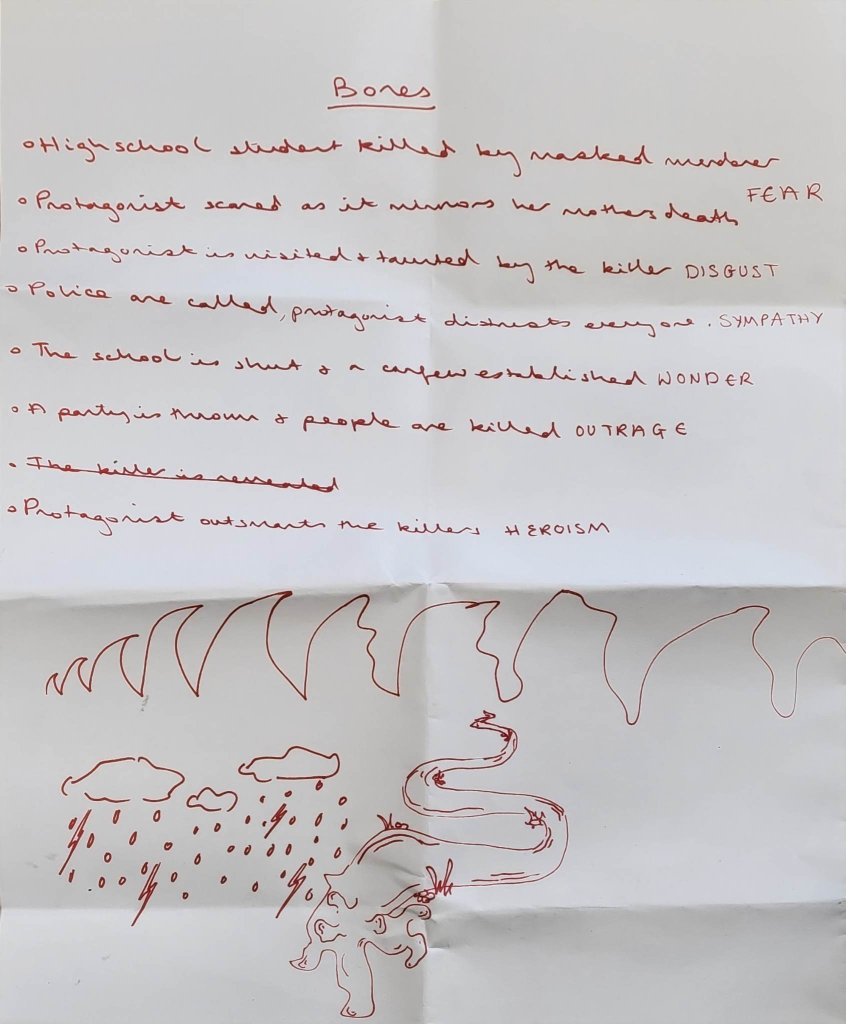 Bones
• High school student killed by masked murderer
FEAR
• Protagonist scared as it mirrors her mothers death
• Protagonist is visited & taunted by the killer DISGUST
• Police are called, protagonist distrusts everyone. SYMPATHY
• The school is shut & a curfew established WONDER
• A party is thrown & people are killed OUTRAGE
• The killer is revealed
• Protagonist outsmarts the killers HEROISM